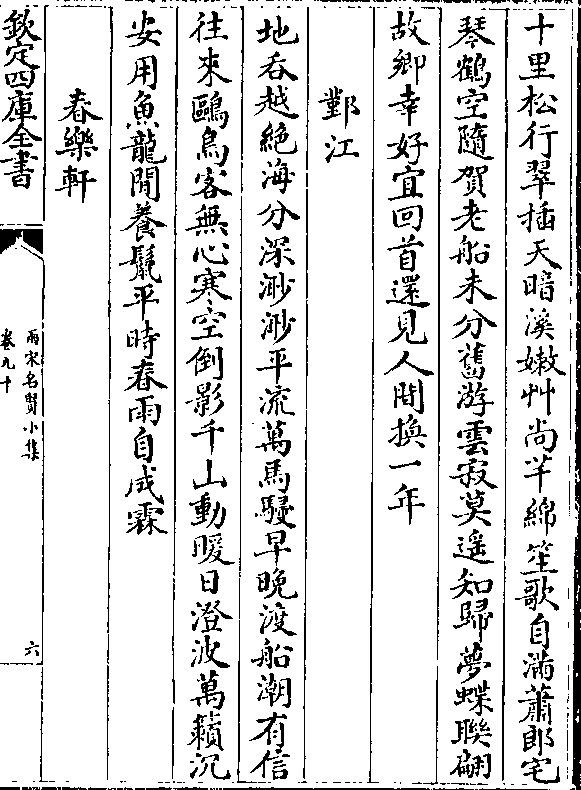 十里松行翠插天暗溪嫩艸尚芊綿笙歌自滿蕭郎宅
琴鶴空隨賀老船未分舊游雲寂莫遥知歸夢蝶聯翩
故鄉幸好宜回首還見人間換一年
鄞江
地吞越絶海分深渺渺平流萬馬駸早晚渡船潮有信
往來鷗鳥客無心寒空倒影千山動暖日澄波萬籟沉
安用魚龍閒養鬛平時春雨自成霖
春樂軒
欽定四庫全書
兩宋名賢小集
卷九十
六